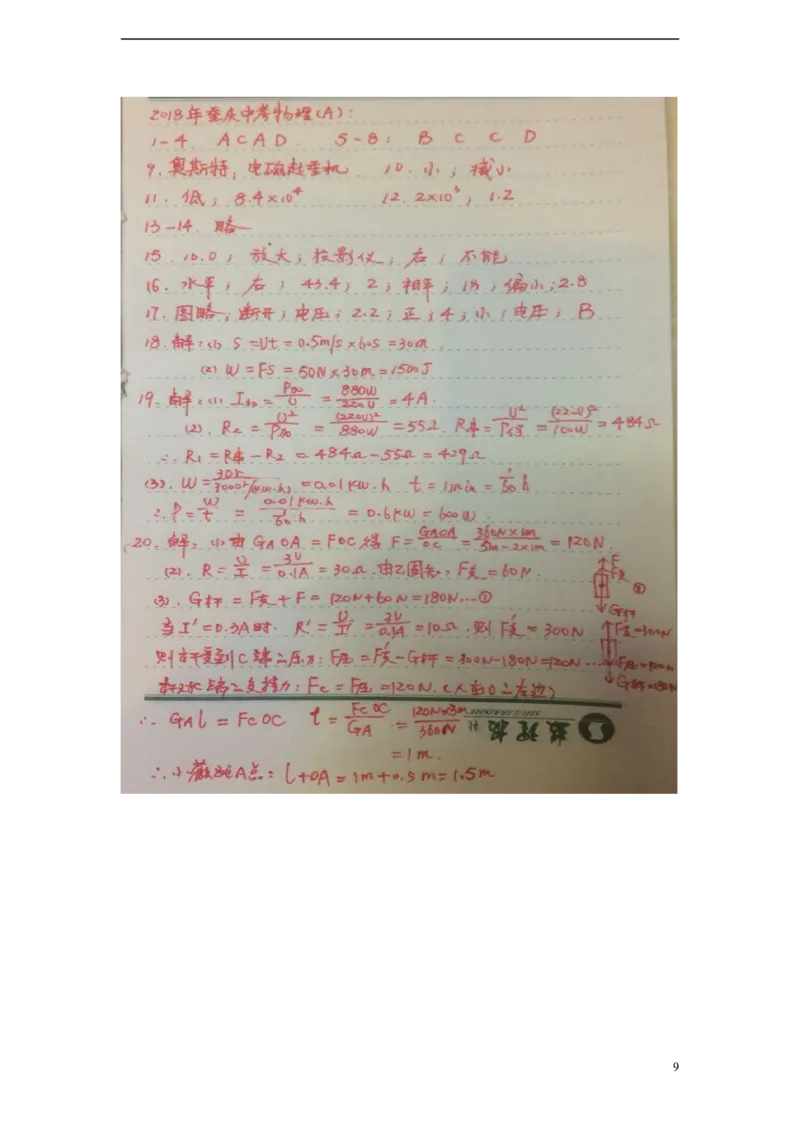 2018年重庆中考物理(A):
1-4. A C A D 5-8: B C C D
9. 奥斯特; 电磁起重机 10. 小; 减小
11. 低; 8.4×10⁴ 12. 2×10³; 1.2
13-14. 略
15. 10.0; 放大; 投影仪; 右; 不能
16. 水平; 右; 43.4; 2; 相平; 18; 偏小; 2.8
17. 图略; 断开; 电压; 2.2; 正; 4; 小; 电压; B
18. 解: (1) S=Vt=0.5m/s×60s=30m
(2) W=FS=50N×30m=1500J
19. 解: (1) I加=P加/U=880W/220V=4A.
(2). R₂=U²/P加=(220V)²/880W=55Ω. R串=U²/P保=(220V)²/100W=484Ω
∴ R₁=R串-R₂=484Ω-55Ω=429Ω
(3). W=30r/3000r/(kW·h)=0.01kW·h t=1min=1/60 h
∴ P=W/t=0.01kW·h/(1/60 h)=0.6kW=600W
20. 解: (1)由GAOA=FOC得 F=GAOA/OC=360N×1m/5m-2×1m=120N
(2). R=U/I=3V/0.1A=30Ω.由乙图知: F支=60N.
(3). G杆=F支+F=120N+60N=180N…①
当I'=0.3A时. R'=U/I'=3V/0.3A=10Ω. 则F支'=300N
则杆受到C端之压力: F压=F支'-G杆=300N-180N=120N…
杆对C端之支持力: Fc=F压=120N.(人在O之左边)
F
F支
②
G杆
F支'=300N
F压=120N
G杆=180N
∴ GAl=FcOC l=FcOC/GA=120N×3m/360N
=1m.
∴小薇距A点: l+OA=1m+0.5m=1.5m
数理报
9